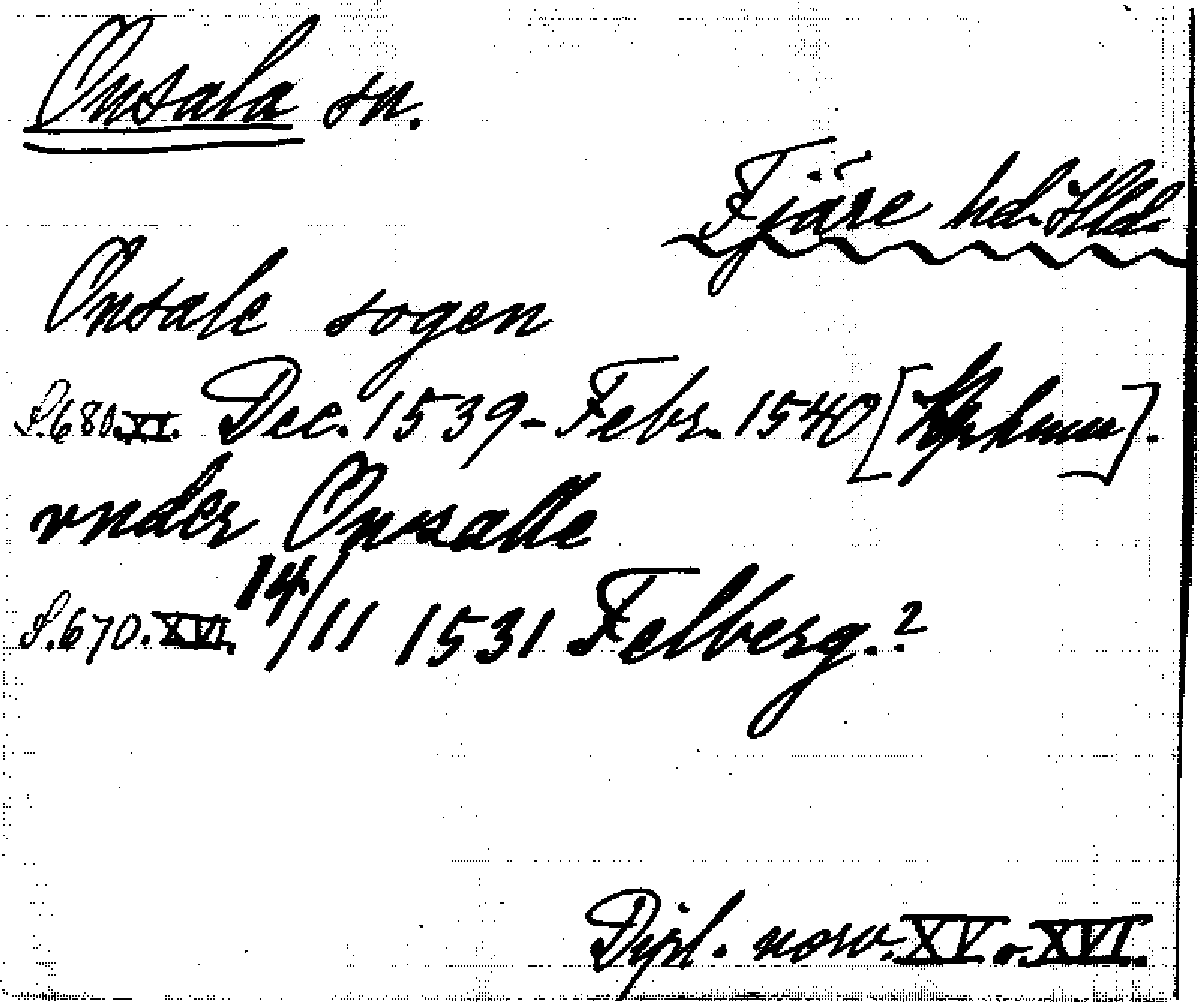 Onsala sn.
Fjäre hd. Hld.
Onsale sogen
S. 680. XV. Dec. 1539 - Febr. 1540 [Kphmn].
vnder Onssalle
S. 670. XVI. 14/11 1531 Felberg.?
Dipl. norv. XV. o. XVI.